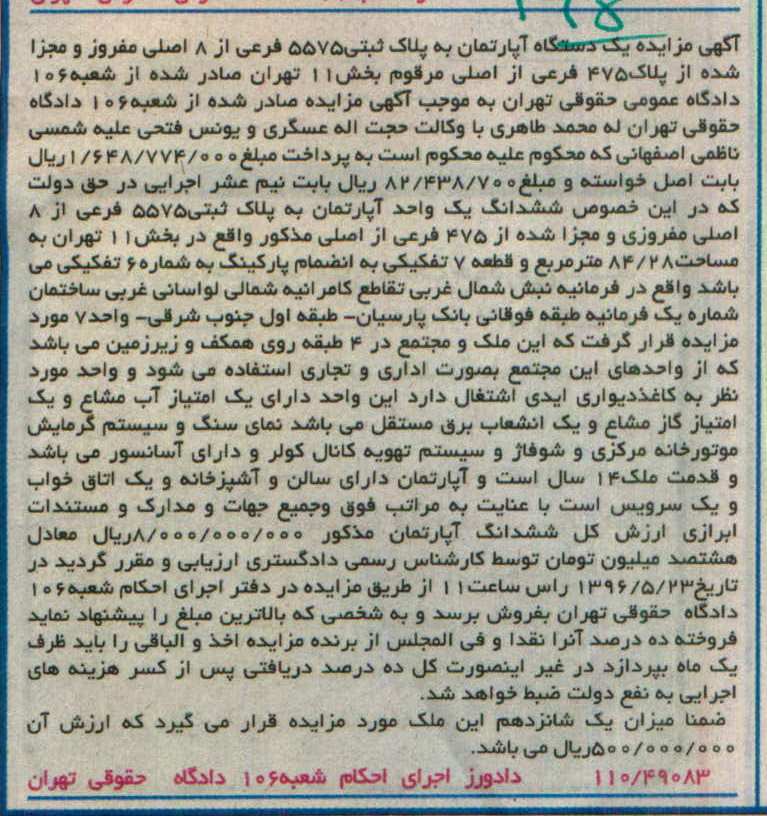 ۲۱۵
آگهی مزایده یک دستگاه آپارتمان به پلاک ثبتی۵۵۷۵ فرعی از ۸ اصلی مفروز و مجزا
شده از پلاک۴۷۵ فرعی از اصلی مرقوم بخش۱۱ تهران صادر شده از شعبه۱۰۶
دادگاه عمومی حقوقی تهران به موجب آگهی مزایده صادر شده از شعبه۱۰۶ دادگاه
حقوقی تهران له محمد طاهری با وکالت حجت اله عسگری و یونس فتحی علیه شمسی
ناظمی اصفهانی که محکوم علیه محکوم است به پرداخت مبلغ۱/۶۴۸/۷۷۴/۰۰۰ریال
بابت اصل خواسته و مبلغ۸۲/۴۳۸/۷۰۰ ریال بابت نیم عشر اجرایی در حق دولت
که در این خصوص ششدانگ یک واحد آپارتمان به پلاک ثبتی۵۵۷۵ فرعی از ۸
اصلی مفروزی و مجزا شده از ۴۷۵ فرعی از اصلی مذکور واقع در بخش۱۱ تهران به
مساحت۸۴/۲۸ مترمربع و قطعه ۷ تفکیکی به انضمام پارکینگ به شماره۶ تفکیکی می
باشد واقع در فرمانیه نبش شمال غربی تقاطع کامرانیه شمالی لواسانی غربی ساختمان
شماره یک فرمانیه طبقه فوقانی بانک پارسیان- طبقه اول جنوب شرقی- واحد۷ مورد
مزایده قرار گرفت که این ملک و مجتمع در ۴ طبقه روی همکف و زیرزمین می باشد
که از واحدهای این مجتمع بصورت اداری و تجاری استفاده می شود و واحد مورد
نظر به کاغذدیواری ایدی اشتغال دارد این واحد دارای یک امتیاز آب مشاع و یک
امتیاز گاز مشاع و یک انشعاب برق مستقل می باشد نمای سنگ و سیستم گرمایش
موتورخانه مرکزی و شوفاژ و سیستم تهویه کانال کولر و دارای آسانسور می باشد
و قدمت ملک۱۴ سال است و آپارتمان دارای سالن و آشپزخانه و یک اتاق خواب
و یک سرویس است با عنایت به مراتب فوق وجمیع جهات و مدارک و مستندات
ابرازی ارزش کل ششدانگ آپارتمان مذکور ۸/۰۰۰/۰۰۰/۰۰۰ریال معادل
هشتصد میلیون تومان توسط کارشناس رسمی دادگستری ارزیابی و مقرر گردید در
تاریخ۱۳۹۶/۵/۲۳ راس ساعت۱۱ از طریق مزایده در دفتر اجرای احکام شعبه۱۰۶
دادگاه حقوقی تهران بفروش برسد و به شخصی که بالاترین مبلغ را پیشنهاد نماید
فروخته ده درصد آنرا نقدا و فی المجلس از برنده مزایده اخذ و الباقی را باید ظرف
یک ماه بپردازد در غیر اینصورت کل ده درصد دریافتی پس از کسر هزینه های
اجرایی به نفع دولت ضبط خواهد شد.
ضمنا میزان یک شانزدهم این ملک مورد مزایده قرار می گیرد که ارزش آن
۵۰۰/۰۰۰/۰۰۰ریال می باشد.
۱۱۰/۴۹۰۸۳ دادورز اجرای احکام شعبه۱۰۶ دادگاه حقوقی تهران